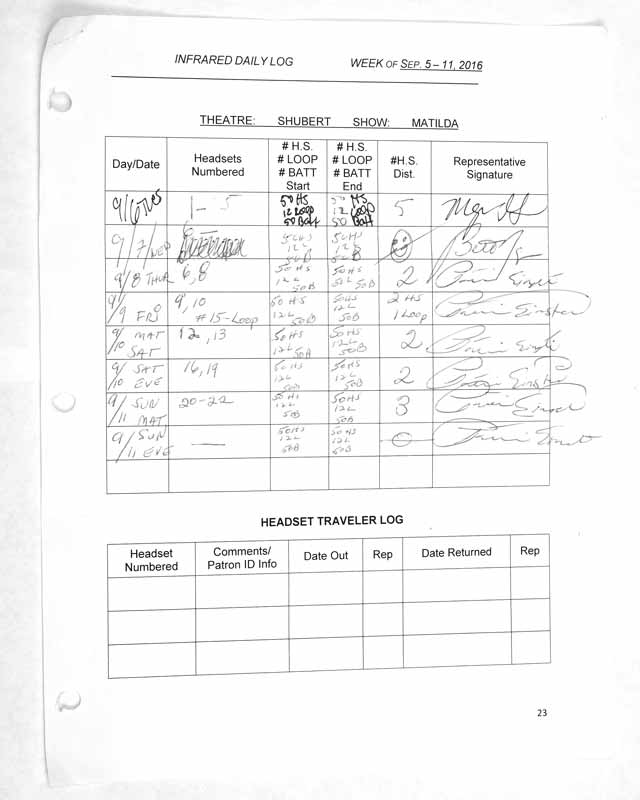 INFRARED DAILY LOG WEEK OF SEP. 5 – 11, 2016
THEATRE: SHUBERT SHOW: MATILDA
Day/Date
Headsets
Numbered
# H.S.
# LOOP
# BATT
Start
# H.S.
# LOOP
# BATT
End
#H.S.
Dist.
Representative
Signature
9/6 TUES
1 - 5
50 HS
12 Loop
50 Batt
50 HS
12 Loop
50 Batt
5
9/7 WED
50HS
12L
50B
50HS
12L
50B
9/8 THUR
6,8
50HS
12L
50B
50HS
50B
2
9/9 FRI
9, 10
#15-Loop
50 HS
12L
50B
50HS
12L
50B
2 HS
1 Loop
9/10 MAT
SAT
12, 13
50HS
12L
50B
50HS
12L
50B
2
9/10 SAT
EVE
16,19
50HS
12L
50B
50HS
12L
50B
2
9/11 SUN
MAT
20-22
50HS
12L
50B
50HS
12L
50B
3
9/11 SUN
EVE
—
50HS
12L
50B
50HS
12L
50B
0
HEADSET TRAVELER LOG
Headset
Numbered
Comments/
Patron ID Info
Date Out
Rep
Date Returned
Rep
23